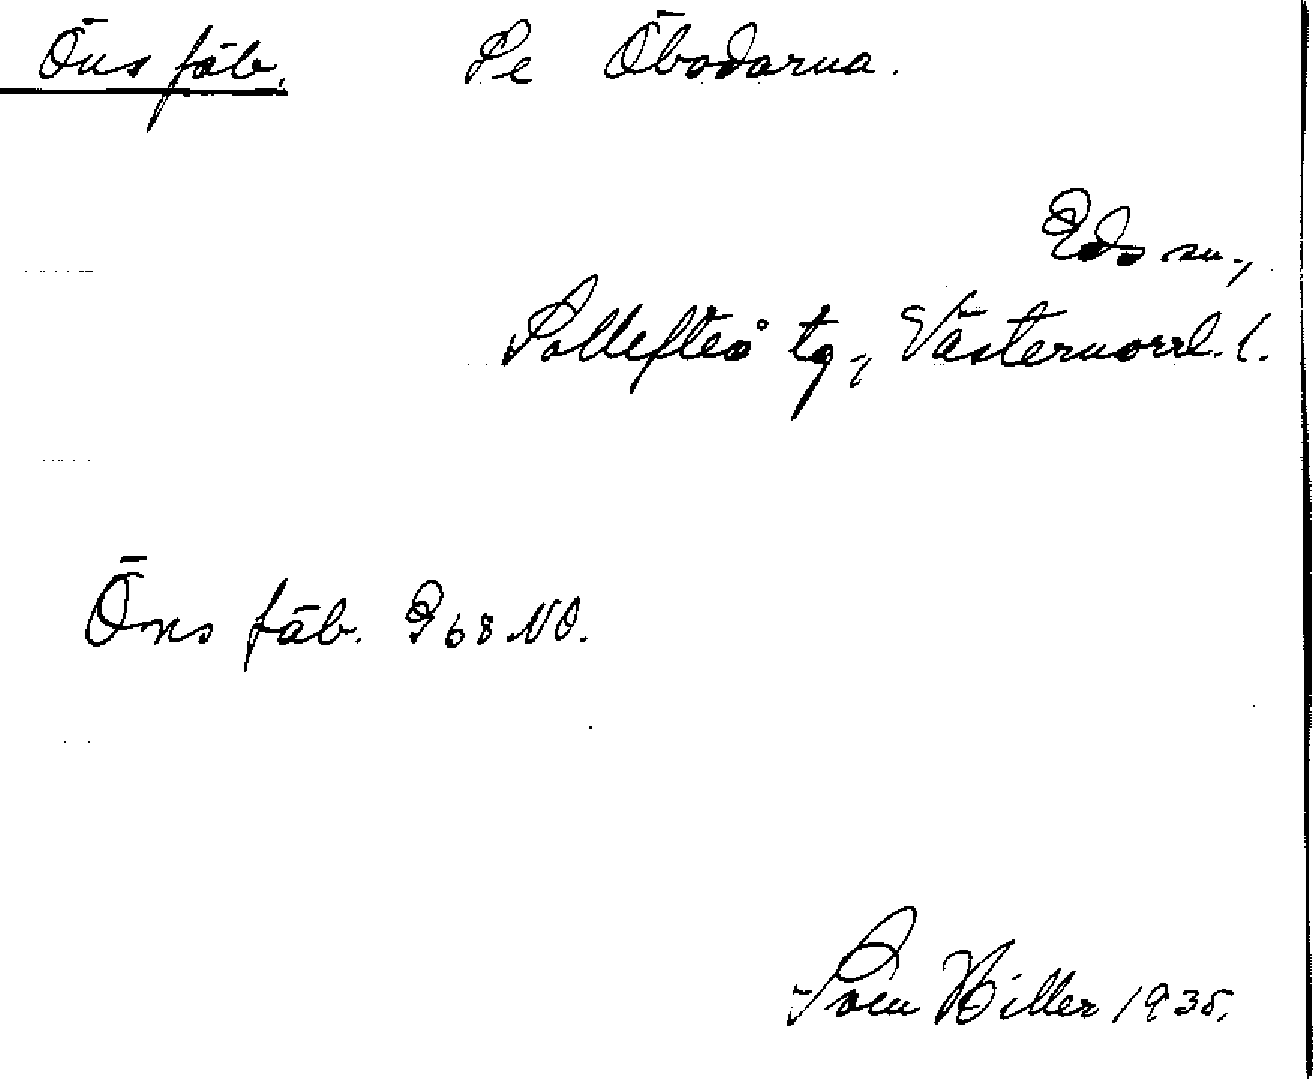 Öns fäb. Se Öbodarna.
Eds sn.,
Sollefteå tg., Västernorrl. l.
Öns fäb. G 68 NO.
Sven Hiller 1935.